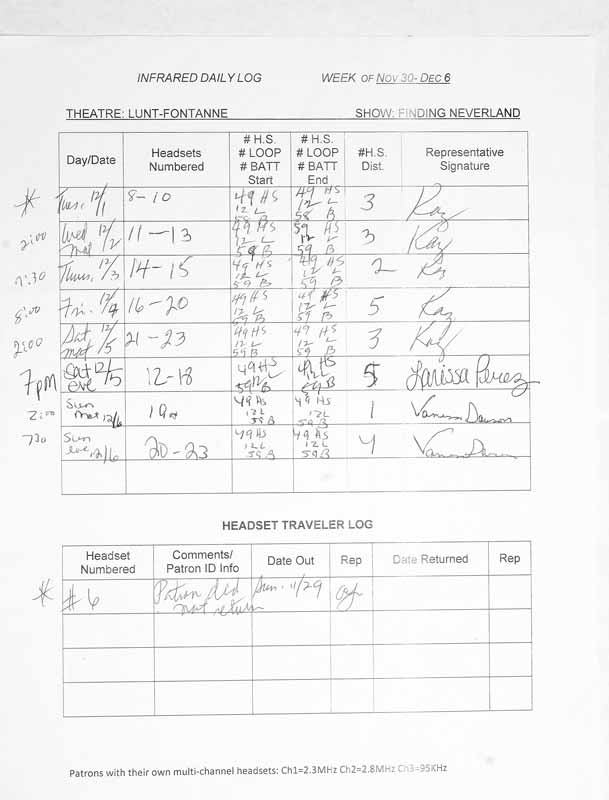 INFRARED DAILY LOG WEEK OF NOV 30- DEC 6
THEATRE: LUNT-FONTANNE SHOW: FINDING NEVERLAND
Day/Date Headsets Numbered # H.S. # LOOP # BATT Start # H.S. # LOOP # BATT End #H.S. Dist. Representative Signature
* Tues. 12/1 8-10 49 HS 12 L 58 B 49 HS 12 L 58 B 3 Kaz
2:00 Wed mat 12/2 11-13 49 HS 12 L 59 B 59 HS 12 L 59 B 3 Kaz
7:30 Thurs. 12/3 14-15 49 HS 12 L 59 B 49 HS 12 L 59 B 2 Kaz
8:00 Fri. 12/4 16-20 49 HS 12 L 59 B 49 HS 12 L 59 B 5 Kaz
2:00 Sat mat 12/5 21-23 49 HS 12 L 59 B 49 HS 12 L 59 B 3 Kaz
7pm Sat eve 12/5 12-18 49 HS 12 L 59 B 49 HS 12 L 59 B 5 Larissa Perez
2:00 Sun mat 12/6 19 49 HS 12 L 59 B 49 HS 12 L 59 B 1 Vanessa Dawson
730 Sun eve 12/6 20-23 49 HS 12 L 59 B 49 HS 12 L 59 B 4 Vanessa Dawson
HEADSET TRAVELER LOG
Headset Numbered Comments/ Patron ID Info Date Out Rep Date Returned Rep
* #6 Patron did not return Sun. 11/29
Patrons with their own multi-channel headsets: Ch1=2.3MHz Ch2=2.8MHz Ch3=95KHz